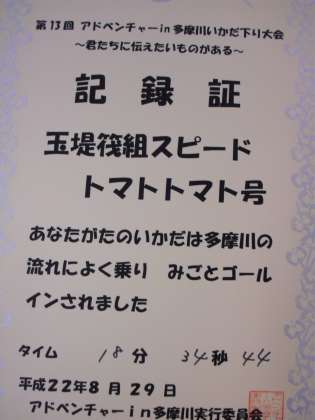 第13回 アドベンチャーin多摩川いかだ下り大会
～君たちに伝えたいものがある～
記録証
玉堤筏組スピード
トマトトマト号
あなたがたのいかだは多摩川の
流れによく乗り みごとゴール
インされました
タイム 18分 34秒 44
平成22年8月29日
アドベンチャーin多摩川実行委員会